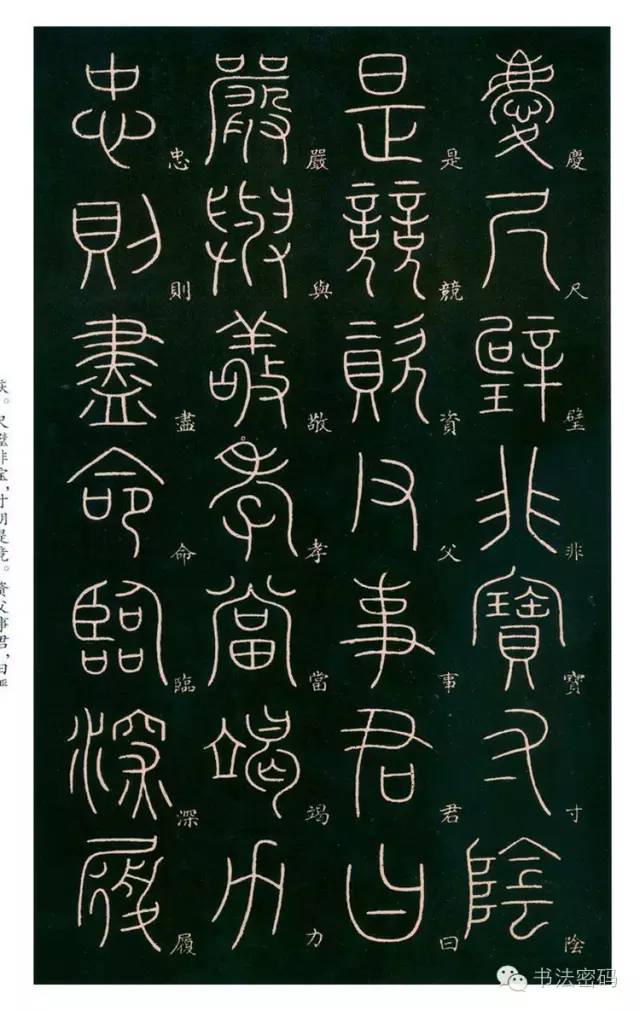 慶尺璧非寶寸陰
是競資父事君曰
嚴與敬孝當竭力
忠則盡命臨深履
尺璧非宝,寸阴是竞。资父事君,曰严
书法密码